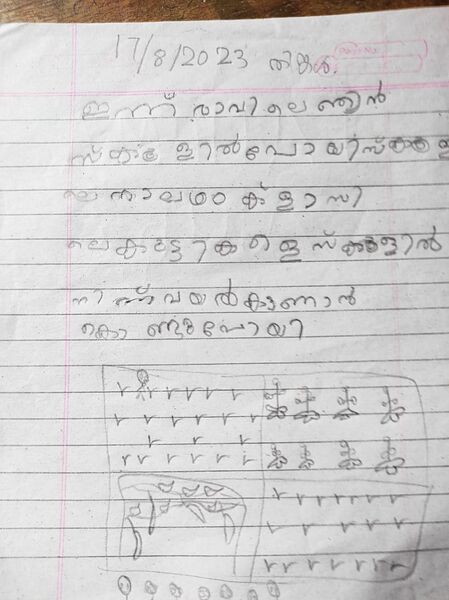 17/8/2023 തിങ്കൾ.
ഇന്ന് രാവിലെ ഞാൻ
സ്കൂളിൽ പോയി സ്കൂളി
ലെ നാലാം ക്ളാസി
ലെ കുട്ടികളെ സ്കൂളിൽ
നിന്ന് വയൽ കാണാൻ
കൊണ്ടുപോയി